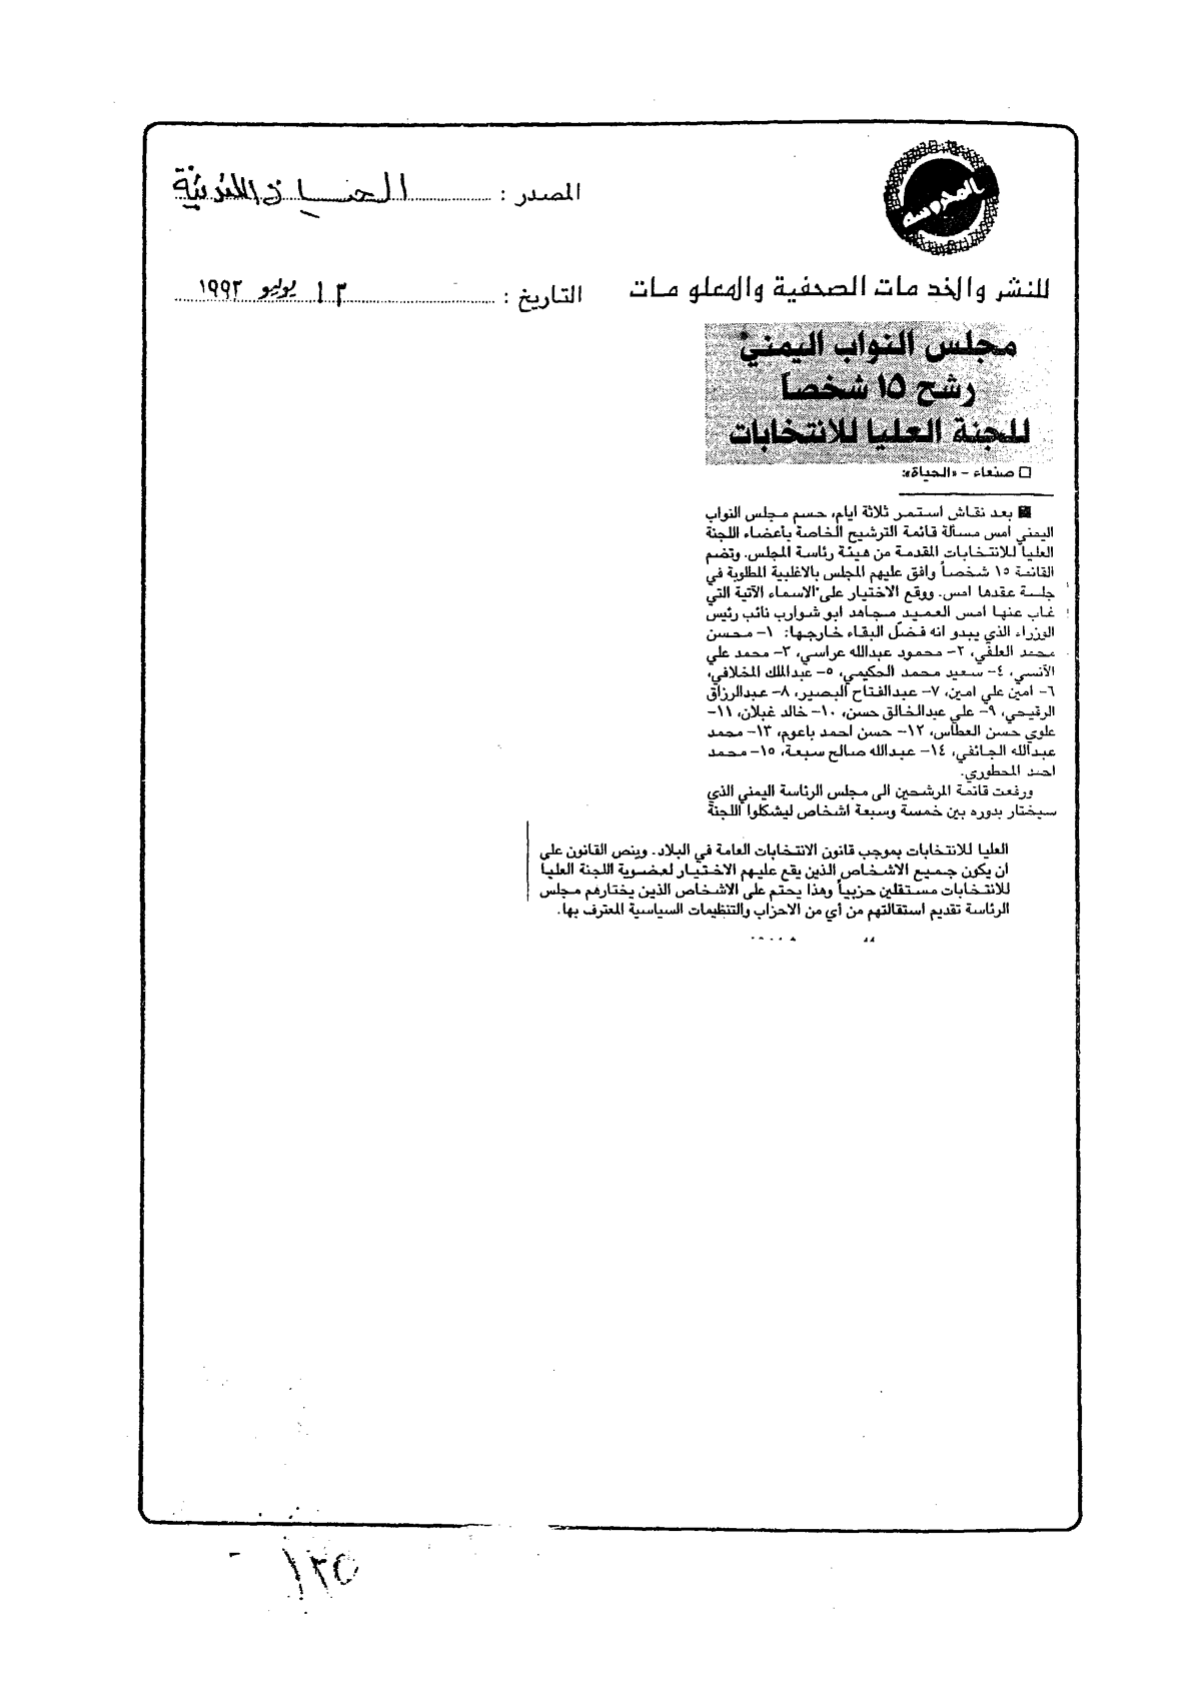 المحروسة
المصدر : الحياة اللندنية
للنشر والخدمات الصحفية والمعلومات
التاريخ : ١٣ يوليو ١٩٩٢
مجلس النواب اليمني
رشح ١٥ شخصاً
للجنة العليا للانتخابات
□ صنعاء - «الحياة»:
■ بعد نقاش استمر ثلاثة ايام، حسم مجلس النواب
اليمني امس مسألة قائمة الترشيح الخاصة بأعضاء اللجنة
العليا للانتخابات المقدمة من هيئة رئاسة المجلس. وتضم
القائمة ١٥ شخصاً وافق عليهم المجلس بالاغلبية المطلوبة في
جلسة عقدها امس. ووقع الاختيار على الاسماء الآتية التي
غاب عنها امس العميد مجاهد ابو شوارب نائب رئيس
الوزراء الذي يبدو انه فضّل البقاء خارجها: ١- محسن
محمد العلفي، ٢- محمود عبدالله عراسي، ٣- محمد علي
الآنسي، ٤- سعيد محمد الحكيمي، ٥- عبدالملك المخلافي،
٦- امين علي امين، ٧- عبدالفتاح البصير، ٨- عبدالرزاق
الرقيحي، ٩- علي عبدالخالق حسن، ١٠- خالد غيلان، ١١-
علوي حسن العطاس، ١٢- حسن احمد باعوم، ١٣- محمد
عبدالله الجائفي، ١٤- عبدالله صالح سبعة، ١٥- محمد
احمد المحطوري.
ورفعت قائمة المرشحين الى مجلس الرئاسة اليمني الذي
سيختار بدوره بين خمسة وسبعة اشخاص ليشكلوا اللجنة
العليا للانتخابات بموجب قانون الانتخابات العامة في البلاد. وينص القانون على
ان يكون جميع الاشخاص الذين يقع عليهم الاختيار لعضوية اللجنة العليا
للانتخابات مستقلين حزبياً وهذا يحتم على الاشخاص الذين يختارهم مجلس
الرئاسة تقديم استقالتهم من أي من الاحزاب والتنظيمات السياسية المعترف بها.
١٢٥